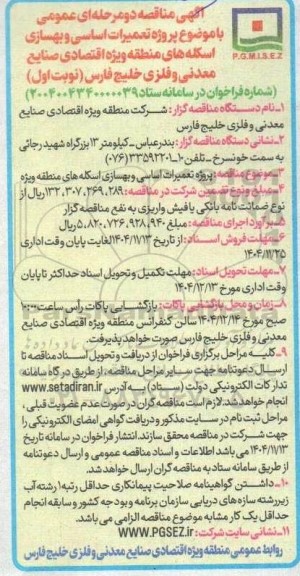 آگهی مناقصه دو مرحله ای عمومی
با موضوع پروژه تعمیرات اساسی و بهسازی
اسکله های منطقه ویژه اقتصادی صنایع
معدنی و فلزی خلیج فارس (نوبت اول)
P.G.M.I.S.E.Z
(شماره فراخوان در سامانه ستاد ۲۰۰۴۰۰۴۳۴۰۰۰۰۰۳۹)
۱-نام دستگاه مناقصه گزار: شرکت منطقه ویژه اقتصادی صنایع
معدنی و فلزی خلیج فارس
۲-نشانی دستگاه مناقصه گزار: بندرعباس-کیلومتر ۱۳ بزرگراه شهید رجائی
به سمت خونسرخ-تلفن ۱۰-۳۳۵۹۲۲۰۱ (۰۷۶)
۳-موضوع مناقصه: پروژه تعمیرات اساسی و بهسازی اسکله های منطقه ویژه
۴-مبلغ و نوع تضمین شرکت در مناقصه: ۱۳۲,۳۰۷,۲۶۹,۲۸۹ ریال از
نوع ضمانت نامه بانکی یا فیش واریزی به نفع مناقصه گزار
۵-برآورد اجرای مناقصه: مبلغ ۵,۸۲۰,۷۲۶,۹۲۸,۹۴۰ ریال
۶-مهلت فروش اسناد: از تاریخ ۱۴۰۴/۱۱/۱۳ لغایت پایان وقت اداری
۱۴۰۴/۱۱/۲۵
۷-مهلت تحویل اسناد: مهلت تکمیل و تحویل اسناد حداکثر تا پایان
وقت اداری مورخ ۱۴۰۴/۱۲/۱۳
۸-زمان و محل بازگشایی پاکات: بازگشایی پاکات راس ساعت ۱۰:۰۰
صبح مورخ ۱۴۰۴/۱۲/۱۴ سالن کنفرانس منطقه ویژه اقتصادی صنایع
معدنی و فلزی خلیج فارس صورت خواهد پذیرفت.
۹-کلیه مراحل برگزاری فراخوان از دریافت و تحویل اسناد مناقصه تا
ارسال دعوتنامه جهت سایر مراحل مناقصه، از طریق درگاه سامانه
تدارکات الکترونیکی دولت (ستاد) به آدرس www.setadiran.ir
انجام خواهد شد. لازم است مناقصه گران در صورت عدم عضویت قبلی،
مراحل ثبت نام در سایت مذکور و دریافت گواهی امضای الکترونیکی را
جهت شرکت در مناقصه محقق سازند. انتشار فراخوان در سامانه تاریخ
۱۴۰۴/۱۱/۱۳ می باشد اطلاعات و اسناد مناقصه عمومی و ارسال دعوتنامه
از طریق سامانه ستاد به مناقصه گران ارسال خواهد شد.
۱۰-داشتن گواهینامه صلاحیت پیمانکاری حداقل رتبه ۱ رشته آب
زیررشته سازه های دریایی سازمان برنامه و بودجه کشور و سابقه انجام
حداقل یک کار مشابه موضوع مناقصه الزامی می باشد.
۱۱-نشانی سایت شرکت: WWW.PGSEZ.IR
روابط عمومی منطقه ویژه اقتصادی صنایع معدنی و فلزی خلیج فارس